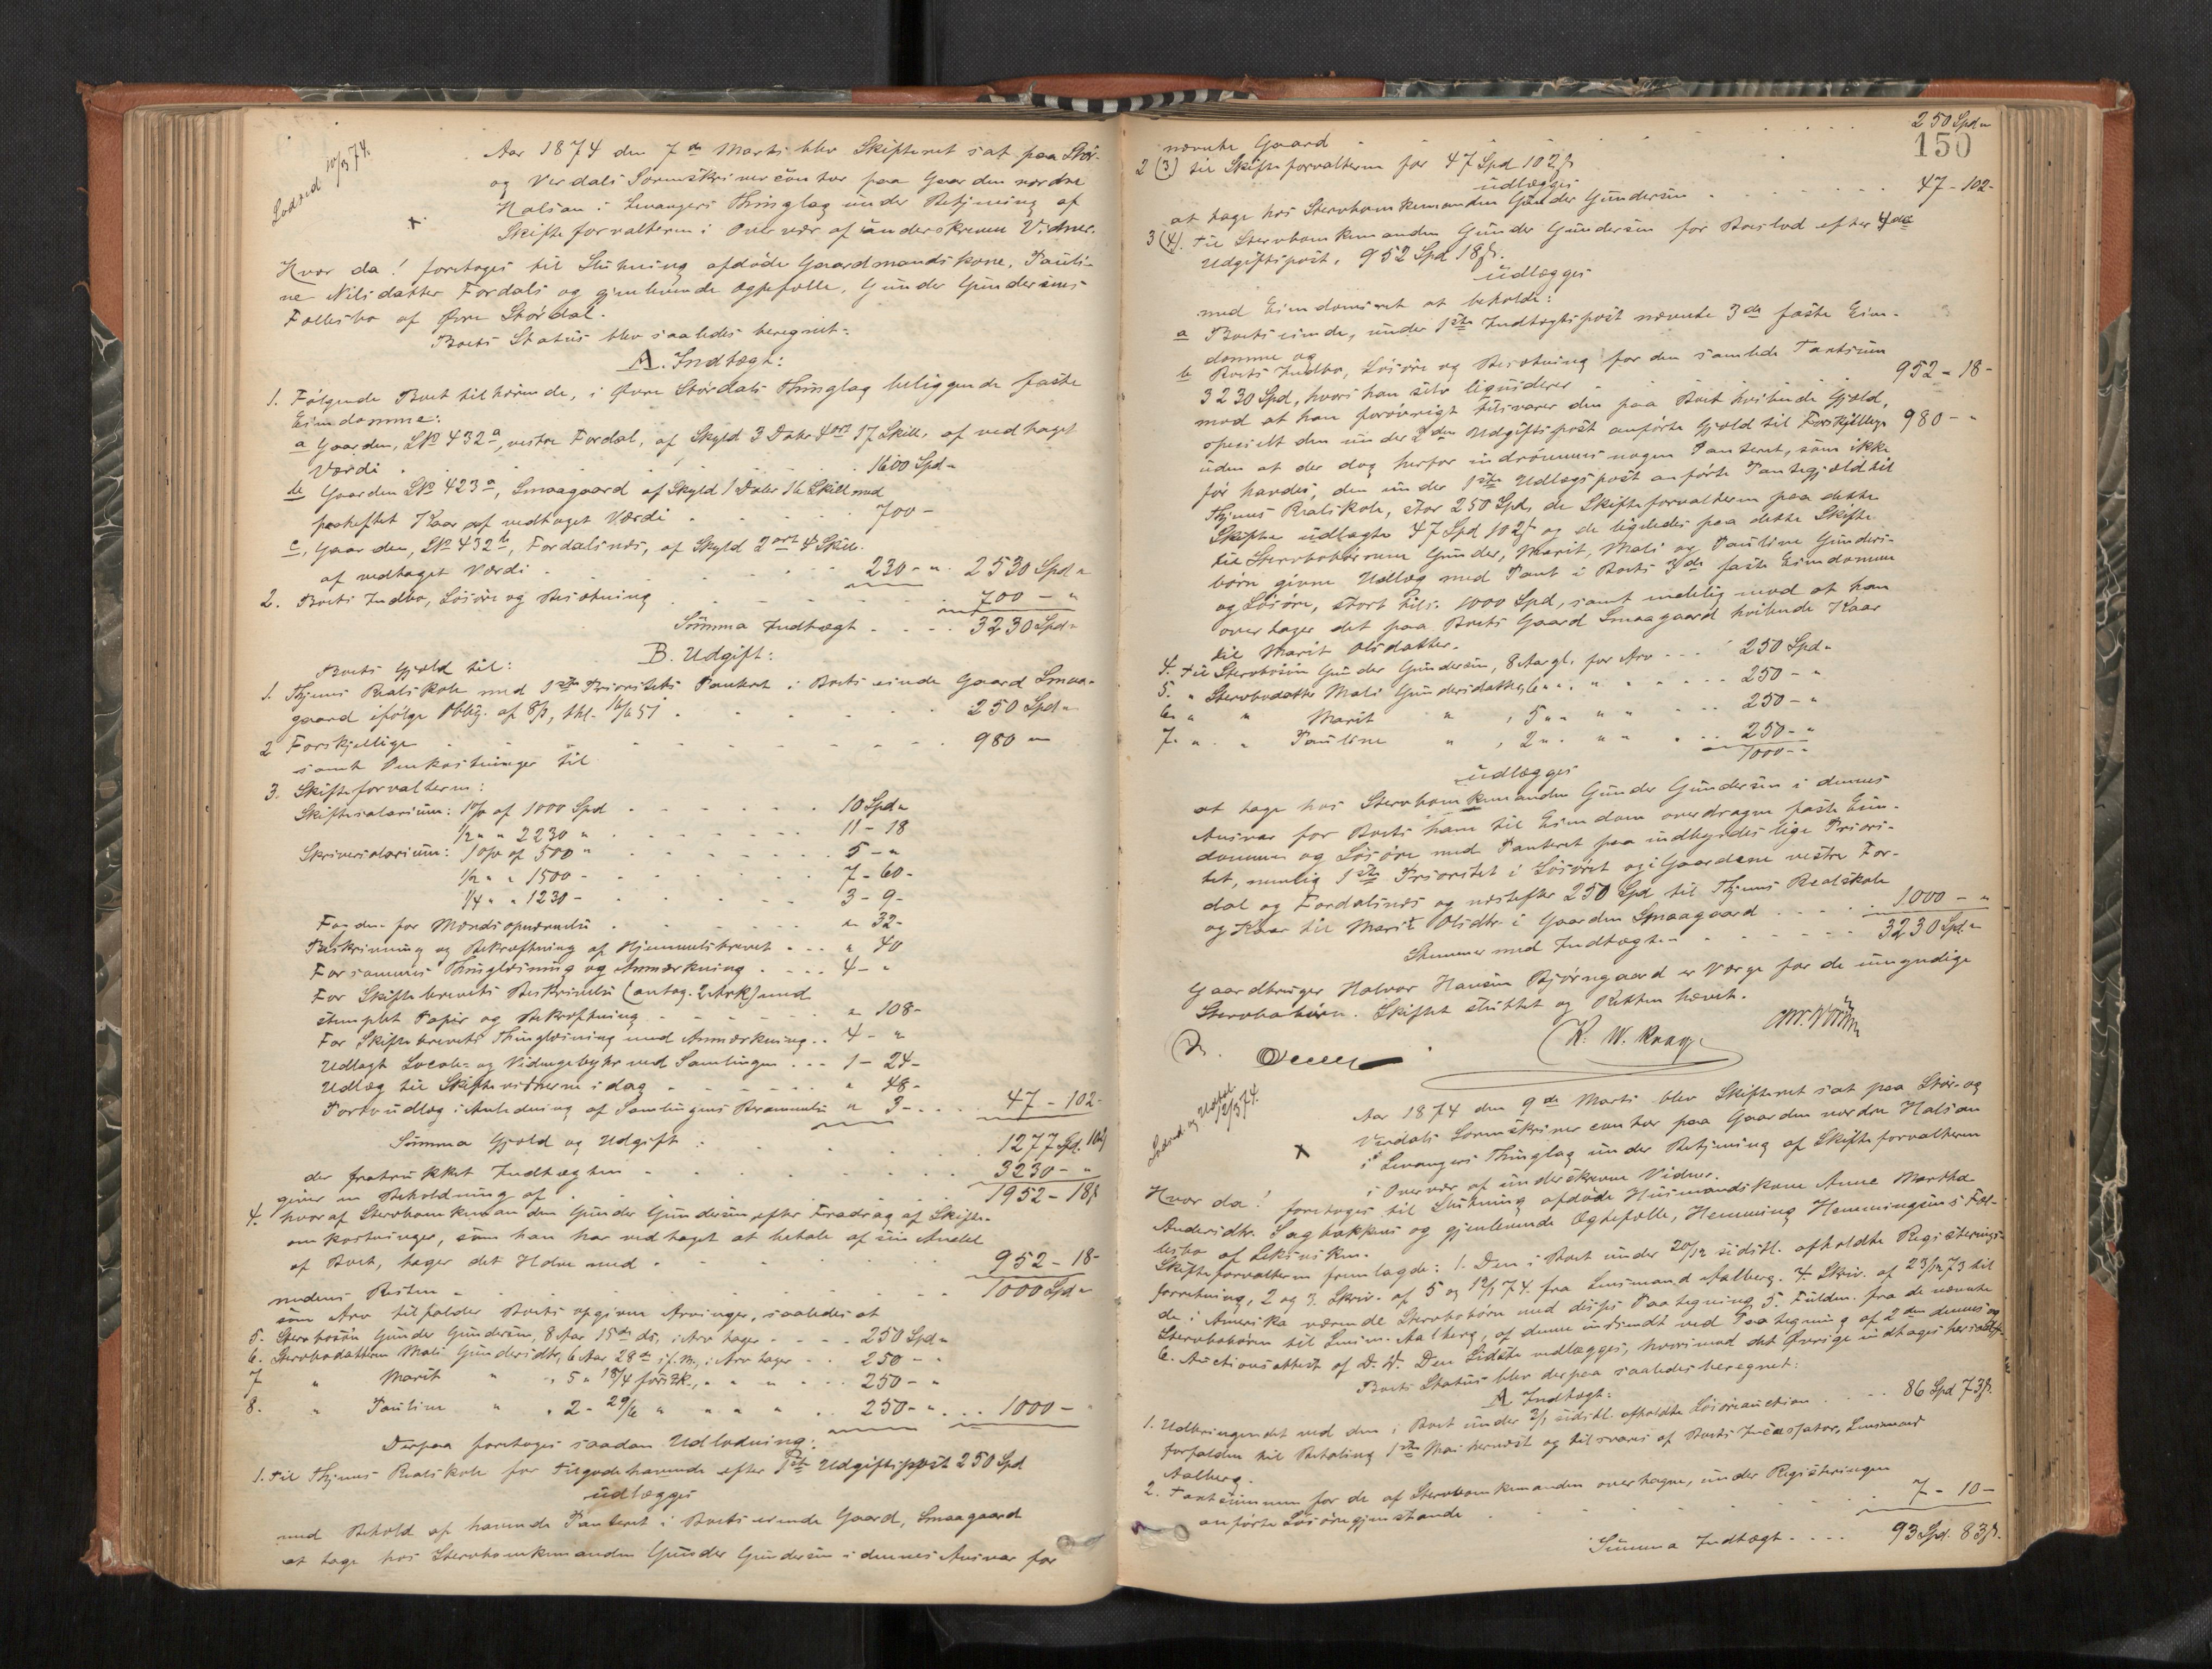 Lodsed 10/3 74.
Aar 1874 den 7de Marts blev Skifteret sat paa Stør-
og Verdals Sorenskrivercontor paa Gaarden nordre
Halsan i Levangers Thinglag under Betjening af
Skifteforvalteren i Overvær af underskrevne Vidner.
Hvor da! foretoges til Slutning afdøde Gaardmandskone, Pauli-
ne Nilsdatter Fordals og gjenlevende Ægtefælle, Gunder Gundersens
Fællesbo af Øvre Størdal.
Boets Status blev saaledes beregnet:
A. Indtægt:
1. Følgende Boet tilhørende, i Øvre Størdals Thinglag beliggende faste
Eiendomme:
a Gaarden, LNo 432a, vestre Fordal, af Skyld 3 Daler 4 ort 17 Skill. af vedtaget
Værdi . . . . 1600 Spd "
b Gaarden LNo 423a, Smaagaard af Skyld 1 Daler 16 Skill med
paaheftet Kaar af vedtaget Værdi . . . 700 -
c, Gaarden, LNo 432b, Fordalsnæs, af Skyld 2 ort 4 Skill.
af vedtaget Værdi . . . 230 - " . 2530 Spd "
2. Boets Indbo, Løsøre og Besætning . . . 700 - "
Summa Indtægt . . . . 3230 Spd "
B. Udgift:
Boets Gjæld til:
1. Thjems Realskole med 1ste Prioritets Panteret i Boets eiende Gaard Smaa-
gaard ifølge Oblig. af 8/3, thl. 16/6 51 . . . 250 Spd "
2 Forskjellige . . . 980 - "
samt Omkostninger til
3. Skifteforvalteren:
Skiftesalarium: 1 % af 1000 Spd . . . 10 Spd "
1/2 " " 2230 " . . . 11 - 18
Skriversalarium: 1 % af 500 " . . . 5 - "
1/2 " " 1500 - . . . 7 - 60 -
1/4 " " 1230 - . . . 3 - 9 -
For do. for Mændsopnævnelse . . . " 32 -
Beskrivning og Bekræftning af Hjemmelsbrevet . . . " 40
For sammes Thinglæsning og Anmærkning . . . . 4 - "
For Skiftebrevets Beskrivelse (antag. 2 Ark) med
stemplet Papir og Bekræftning . . . " 108 -
For Skiftebrevets Thinglæsning med Anmærkning . . 4 - "
Udlagt Locale- og Vidnegebyhr ved Samlingen . . . 1 - 24 -
Udlæg til Skiftevidnerne i dag . . . " 48 -
Portoudlæg i Anledning af Samlingens Berammelse " 3 - . . . 47 - 102 -
Summa Gjæld og Udgift . . . 1277 Spd. 102
der fratrukket Indtægten . . . 3230 - "
giver en Beholdning af . . . 1952 - 18 s
4. hvoraf Stervboenkemanden Gunder Gundersen efter Fradrag af Skifte-
omkostninger, som han har vedtaget at betale af sin Andel
af Boet, tager det Halve med . . . 952 - 18 -
medens Resten . . . 1000 Spd "
som Arv tilfalder Boets opgivne Arvinger, saaledes at
5. Stervbosøn Gunder Gundersen, 8 Aar 15de ds., i Arv tager . . . . 250 Spd "
6. Stervbodatteren Mali Gundersdtr, 6 Aar 28de i f. M., i Arv tager . . 250 - "
7 " Marit " " 5 " 18/4 førstk., " " " . . . 250 - "
8. " Pauline " " 2 - 29/6 " " " " . . 250 - " . . . 1000 -
Derpaa foretoges saadan Udlodning:
1. Til Thjems Realskole for Tilgodehavende efter 1ste Udgiftspost 250 Spd
udlægges
med Behold af havende Panteret i Boets eiende Gaard, Smaagaard
at tage hos Stervboenkemanden Gunder Gundersen i dennes Ansvar for
150
nævnte Gaard . . . 250 Spd "
2 (3) til Skifteforvalteren for 47 Spd 102 s
udlægges
at tage hos Stervboenkemanden Gunder Gundersen . . . 47 - 102 -
3 (4). Til Stervboenkemanden Gunder Gundersen for Boeslod efter 4de
Udgiftspost, 952 Spd 18 s.
udlægges
med Eiendomsret at beholde:
a Boets eiende, under 1ste Indtægtspost nævnte 3de faste Eien-
domme og
b Boets Indbo, Løsøre og Besætning for den samlede Taxtsum
3230 Spd, hvori han selv liquiderer . . . 952 - 18 -
mod at han forøvrigt tilsvarer den paa Boet hvilende Gjæld,
specielt den under 2den Udgiftspost anførte Gjæld til Forskjellige 980 - "
uden at der dog herfor indrømmes nogen Panteret, som ikke
før havdes, den under 1ste Udlægspost anførte Pantegjæld til
Thjems Realskole, stor 250 Spd, de Skifteforvalteren paa dette
Skifte udlagte 47 Spd 102 s og de ligeledes paa dette Skifte
til Stervbobørnene Gunder, Marit, Mali og Pauline Gunders-
børn givne Udlæg med Pant i Boets 3de faste Eiendomme
og Løsøre, stort tils. 1000 Spd, samt endelig mod at han
overtager det paa Boets Gaard Smaagaard hvilende Kaar
til Marit Olsdatter.
4. Til Stervbosøn Gunder Gundersen, 8 Aar gl. for Arv . . . 250 Spd "
5. " Stervbodatter Mali Gundersdatter, 6 " " " " . . . 250 - "
6. " " Marit " , 5 " " " " . . . 250 - "
7. " . " Pauline " , 2 " . " " . . . 250 - "
1000 - "
udlægges
at tage hos Stervboenkemanden Gunder Gundersen i dennes
Ansvar for Boets ham til Eiendom overdragne faste Eien-
domme og Løsøre med Panteret paa indbyrdes lige Priori-
tet, nemlig 1ste Prioritet i Løsøret og i Gaardene vestre For-
dal og Fordalsnæs og næstefter 250 Spd til Thjems Realskole
og Kaar til Marit Olsdtr. i Gaarden Smaagaard . . . . 1000 - "
Stemmer med Indtægten . . . 3230 Spd "
Gaardbruger Halvor Hansen Bjørngaard er Værge for de umyndige
Stervbobørn. Skiftet sluttet og Retten hævet.
K. W. Knag.
Lodsed. og Udskr. 12/3 74.
Aar 1874 den 9de Marts blev Skifteret sat paa Stør- og
Verdals Sorenskrivercontor paa Gaarden nordre Halsan
i Levangers Thinglag under Betjening af Skifteforvalteren
i Overvær af underskrevne Vidner.
Hvor da! foretoges til Slutning afdøde Huusmandskone Anne Martha
Andersdtr. Sagbakkens og gjenlevende Ægtefælle, Hemming Hemmingsens Fæl-
lesbo af Leksviken.
Skifteforvalteren fremlagde: 1. Den i Boet under 20/12 sidstl. afholdte Registerings-
forretning, 2 og 3. Skriv. af 5 og 12/1 74. fra Lensmand Aalberg. 4. Skriv. af 23/12 73 til
de i Amerika værende Stervbobørn med disses Paategning, 5. Fuldm. fra de nævnte
Stervbobørn til Lensm. Aalberg, af denne indsendt ved Paategning af 2den dennes og
6. Auctionsattest af D. D. Den Sidste vedlægges, hvorimod det Øvrige indtages
Boets Status blev derpaa saaledes beregnet:
A Indtægt:
1. Udbringendet ved den i Boet under 2/1 sidstl. afholdte Løsøreauction . . . 86 Spd 73 s.
forfalden til Betaling 1ste Mai hernæst og tilsvares af Boets Incassator, Lensmand
Aalberg.
2. Taxtsummen for de af Stervboenkemanden overtagne, under Registeringen
anførte Løsøregjenstande . . . 7 - 10 -
Summa Indtægt . . . . 93 Spd. 83 s.